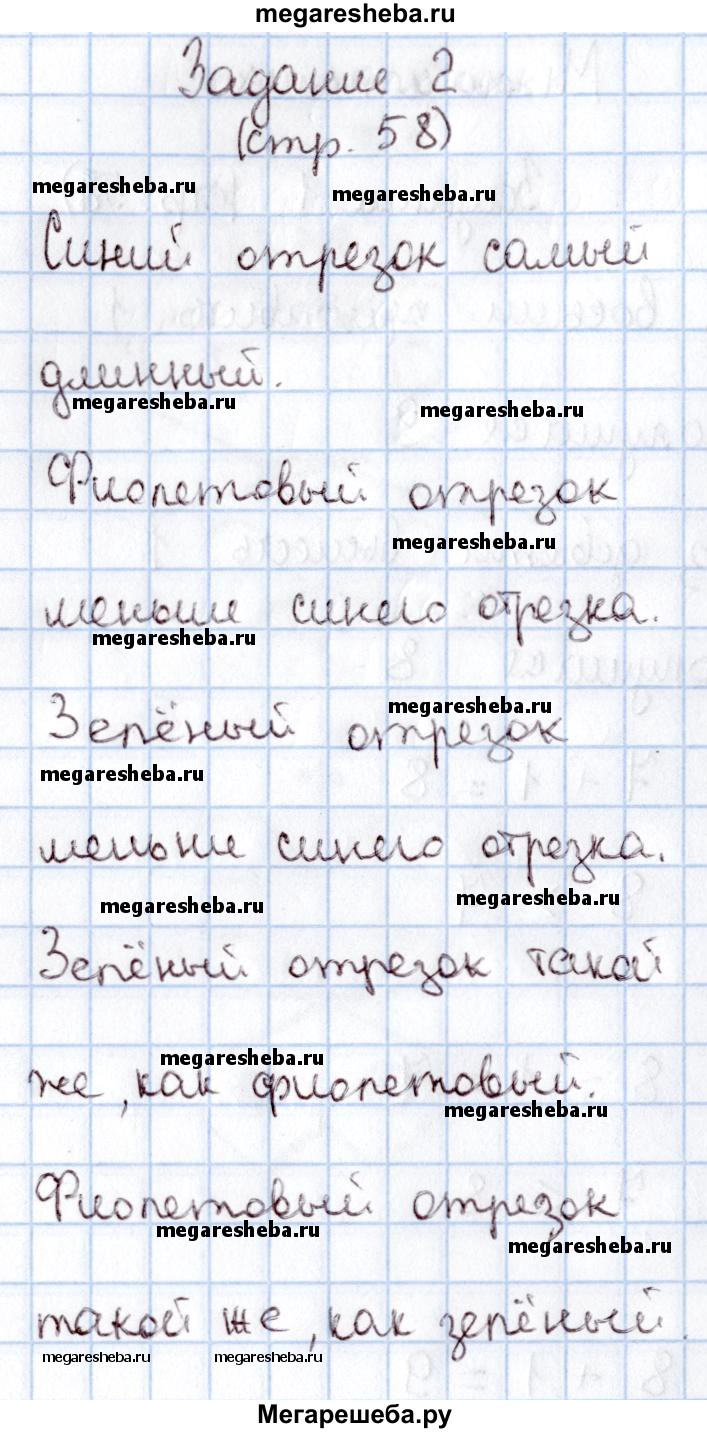 megaresheba.ru
Задание 2
(стр. 58)
megaresheba.ru megaresheba.ru
Синий отрезок самый
длинный.
megaresheba.ru megaresheba.ru
Фиолетовый отрезок
megaresheba.ru
меньше синего отрезка.
megaresheba.ru
megaresheba.ru
Зелёный отрезок
megaresheba.ru
меньше синего отрезка.
megaresheba.ru megaresheba.ru
Зелёный отрезок такой
megaresheba.ru
же, как фиолетовый.
megaresheba.ru
Фиолетовый отрезок
megaresheba.ru megaresheba.ru
такой же, как зелёный.
megaresheba.ru megaresheba.ru
8 + 1 = 9
Мегарешеба.ру